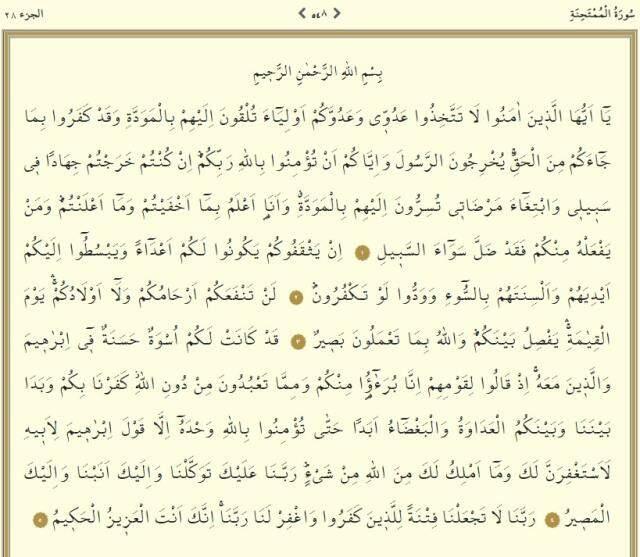 سُورَةُ الْمُمْتَحِنَةِ ٥٤٨ الجزء ٢٨
بِسْمِ اللهِ الرَّحْمٰنِ الرَّحٖيمِ
يَٓا اَيُّهَا الَّذٖينَ اٰمَنُوا لَا تَتَّخِذُوا عَدُوّٖى وَعَدُوَّكُمْ اَوْلِيَٓاءَ تُلْقُونَ اِلَيْهِمْ بِالْمَوَدَّةِ وَقَدْ كَفَرُوا بِمَا
جَٓاءَكُمْ مِنَ الْحَقِّۚ يُخْرِجُونَ الرَّسُولَ وَاِيَّاكُمْ اَنْ تُؤْمِنُوا بِاللهِ رَبِّكُمْؕ اِنْ كُنْتُمْ خَرَجْتُمْ جِهَادًا فٖى
سَبٖيلٖى وَابْتِغَٓاءَ مَرْضَاتٖى تُسِرُّونَ اِلَيْهِمْ بِالْمَوَدَّةِۗ وَاَنَا۬ اَعْلَمُ بِمَٓا اَخْفَيْتُمْ وَمَٓا اَعْلَنْتُمْؕ وَمَنْ
يَفْعَلْهُ مِنْكُمْ فَقَدْ ضَلَّ سَوَٓاءَ السَّبٖيلِ ١ اِنْ يَثْقَفُوكُمْ يَكُونُوا لَكُمْ اَعْدَٓاءً وَيَبْسُطُٓوا اِلَيْكُمْ
اَيْدِيَهُمْ وَاَلْسِنَتَهُمْ بِالسُّٓوءِ وَوَدُّوا لَوْ تَكْفُرُونَؕ ٢ لَنْ تَنْفَعَكُمْ اَرْحَامُكُمْ وَلَٓا اَوْلَادُكُمْۚ يَوْمَ
الْقِيٰمَةِۚ يَفْصِلُ بَيْنَكُمْؕ وَاللهُ بِمَا تَعْمَلُونَ بَصٖيرٌ ٣ قَدْ كَانَتْ لَكُمْ اُسْوَةٌ حَسَنَةٌ فٖٓى اِبْرٰهٖيمَ
وَالَّذٖينَ مَعَهُۚ اِذْ قَالُوا لِقَوْمِهِمْ اِنَّا بُرَءٰٓؤُ۬ا مِنْكُمْ وَمِمَّا تَعْبُدُونَ مِنْ دُونِ اللهِؗ كَفَرْنَا بِكُمْ وَبَدَا
بَيْنَنَا وَبَيْنَكُمُ الْعَدَاوَةُ وَالْبَغْضَٓاءُ اَبَدًا حَتّٰى تُؤْمِنُوا بِاللهِ وَحْدَهُٓ اِلَّا قَوْلَ اِبْرٰهٖيمَ لِاَبٖيهِ
لَاَسْتَغْفِرَنَّ لَكَ وَمَٓا اَمْلِكُ لَكَ مِنَ اللهِ مِنْ شَیْءٍؕ رَبَّنَا عَلَيْكَ تَوَكَّلْنَا وَاِلَيْكَ اَنَبْنَا وَاِلَيْكَ
الْمَصٖيرُ ٤ رَبَّنَا لَا تَجْعَلْنَا فِتْنَةً لِلَّذٖينَ كَفَرُوا وَاغْفِرْ لَنَا رَبَّنَاۚ اِنَّكَ اَنْتَ الْعَزٖيزُ الْحَكٖيمُ ٥